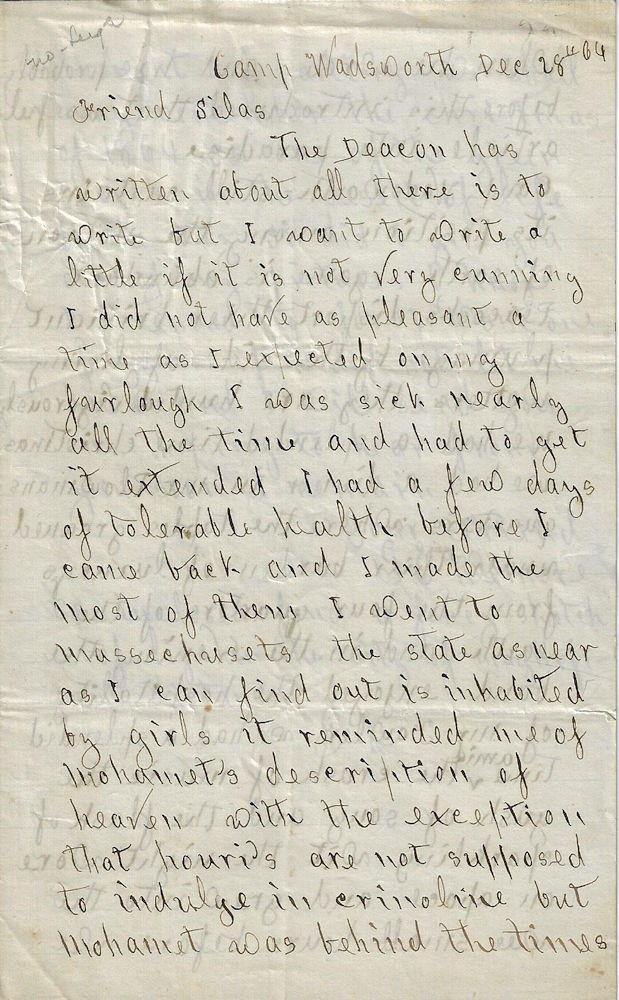 Camp Wadsworth Dec 28th 64
Friend Silas
The Deacon has
written about all there is to
write but I want to write a
little if it is not very cunning
I did not have as pleasant a
time as I expected on my
furlough I was sick nearly
all the time and had to get
it extended I had a few days
of tolerable health before I
came back and I made the
most of them I went to
Massechusets the state as near
as I can find out is inhabited
by girls it reminded me of
Mohamet's description of
heaven with the exception
that houri's are not supposed
to indulge in crinoline but
Mohamet was behind the times